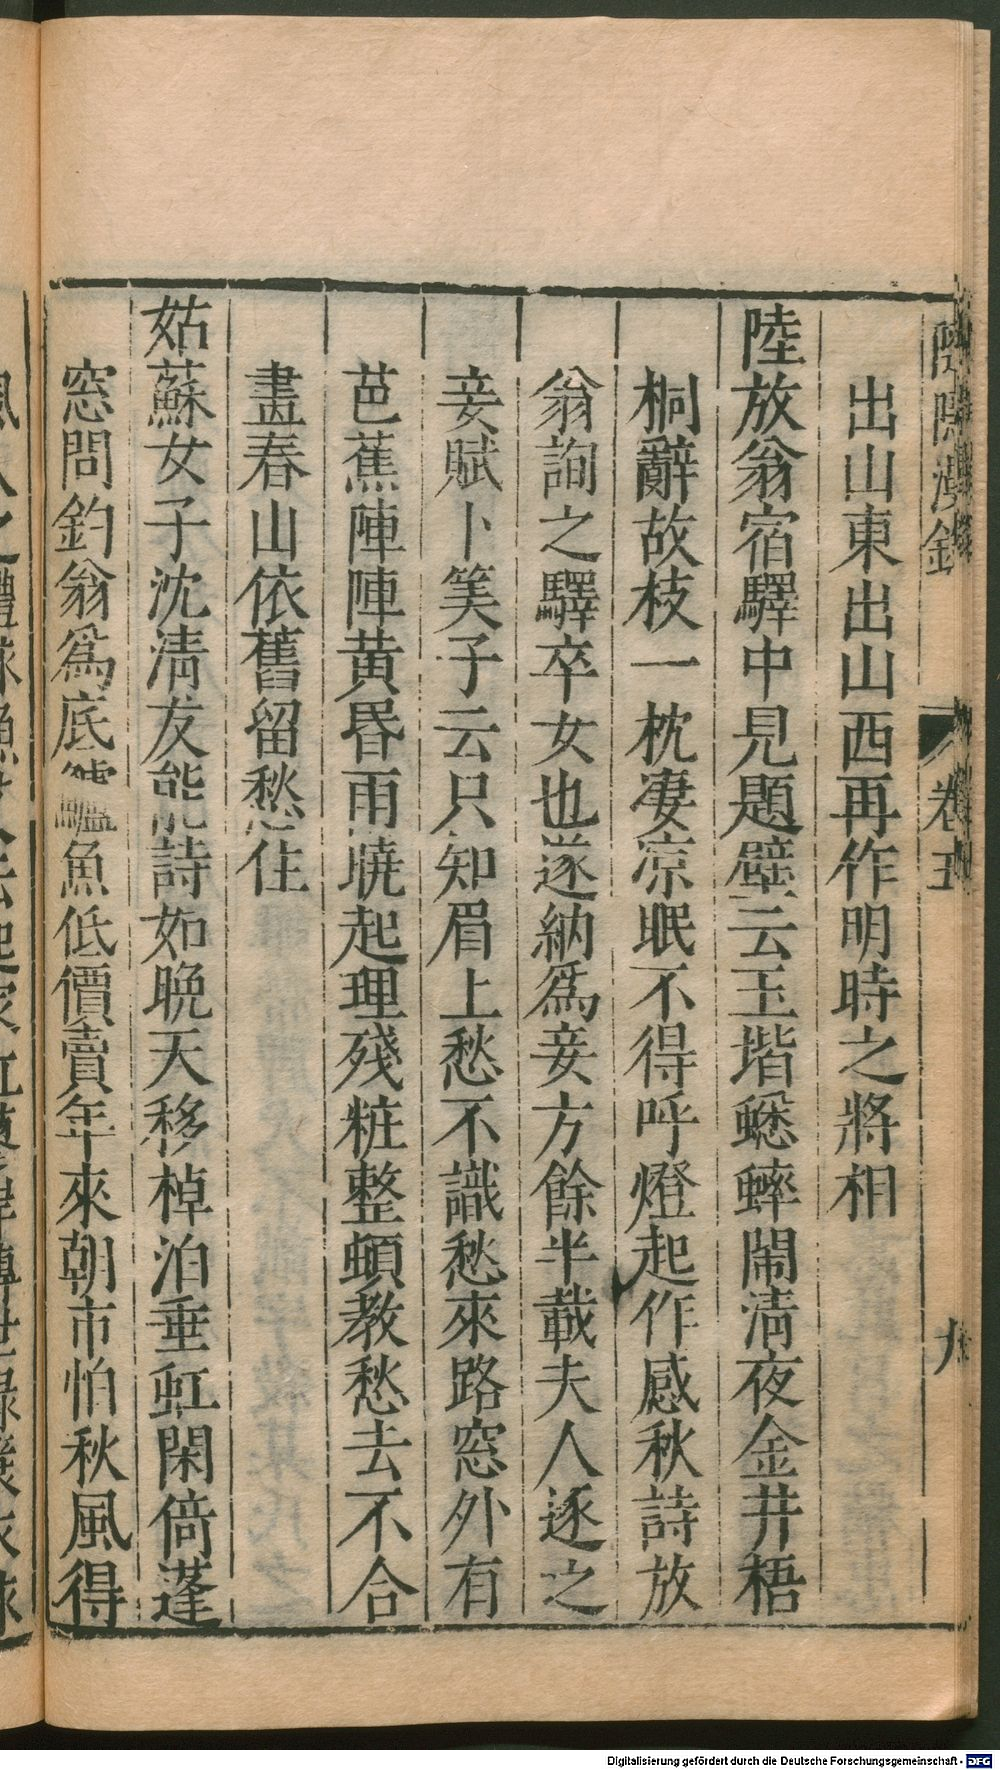 卷五
九
出山東出山西再作明時之將相
陸放翁宿驛中見題壁云玉堦蟋蟀鬧清夜金井梧
桐辭故枝一枕凄凉眠不得呼燈起作感秋詩放
翁詢之驛卒女也遂納爲妾方餘半載夫人逐之
妾賦卜筭子云只知眉上愁不識愁來路窓外有
芭蕉陣陣黄昏雨曉起理殘粧整頓教愁去不合
畫春山依舊留愁住
姑蘇女子沈清友能詩如晩天移棹泊垂虹閑倚蓬
窓問釣翁爲底鱸魚低價賣年來朝市怕秋風得
Digitalisierung gefördert durch die Deutsche Forschungsgemeinschaft - DFG